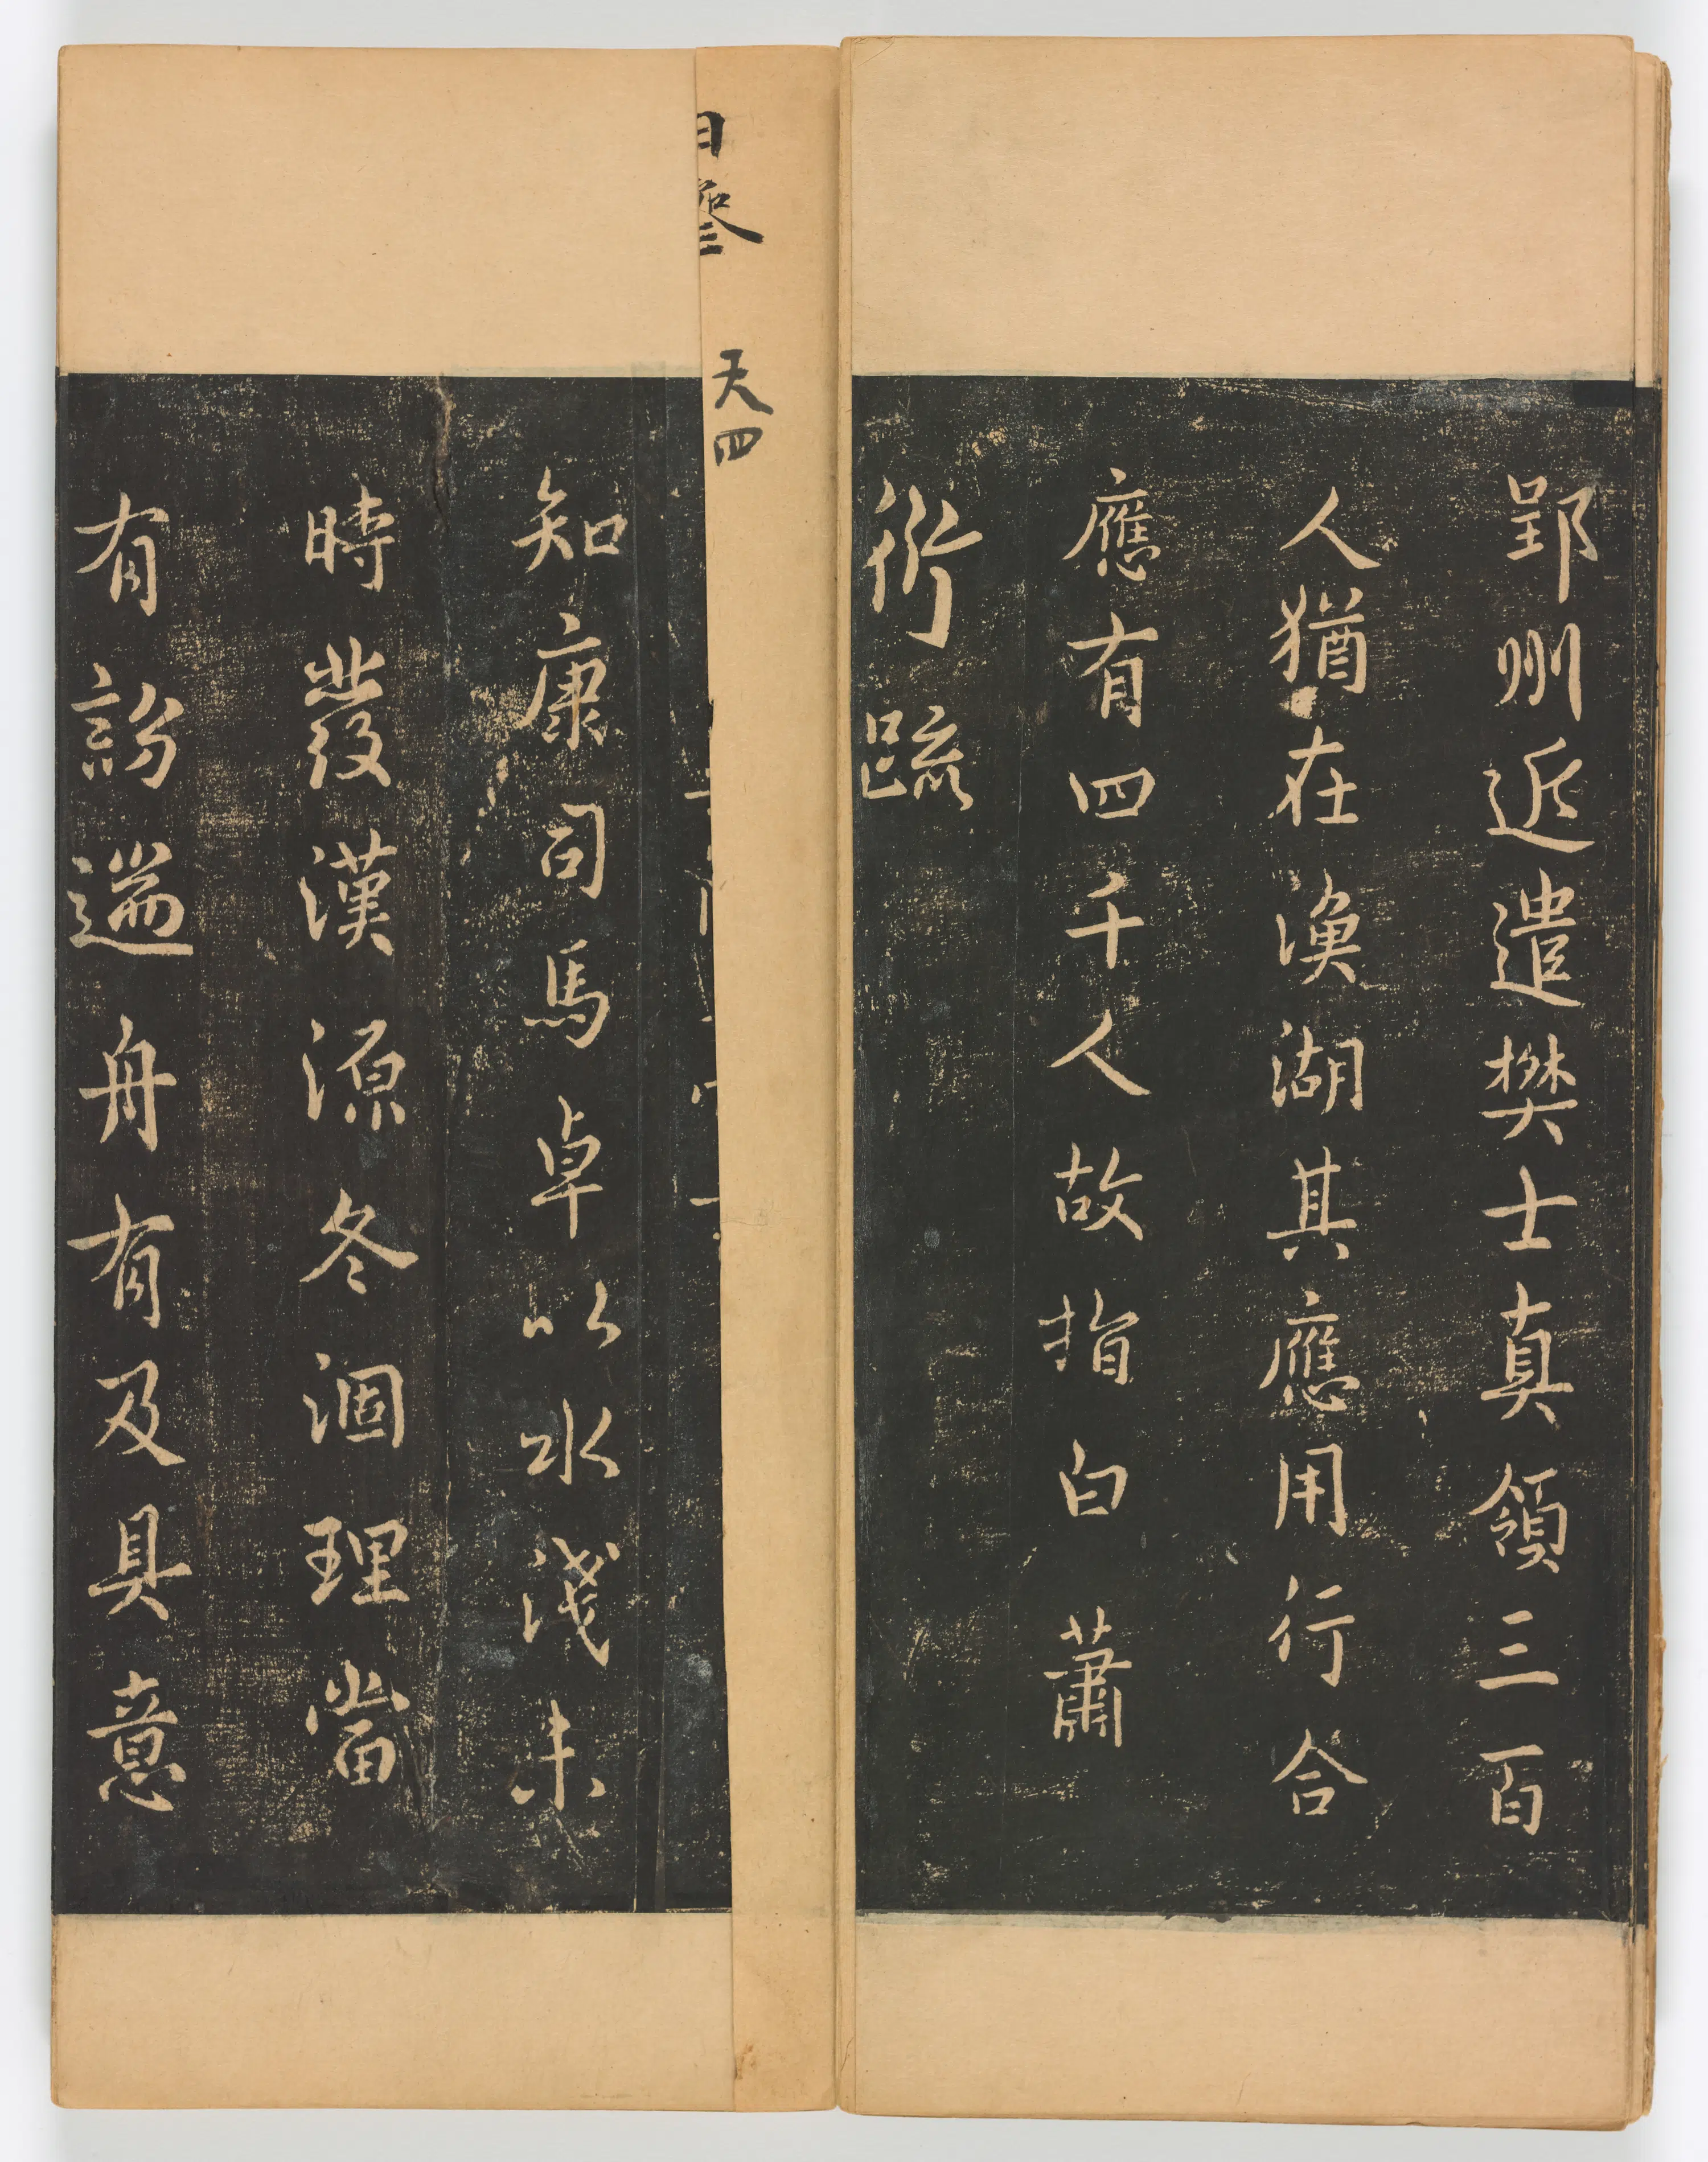 郢州近遣樊士真領三百
人猶在漁湖其應用行合
應有四千人故指白 蕭
衍疏
天四
知康司馬卓以水淺未
時發漢源冬涸理當
有訪遄舟有及具意